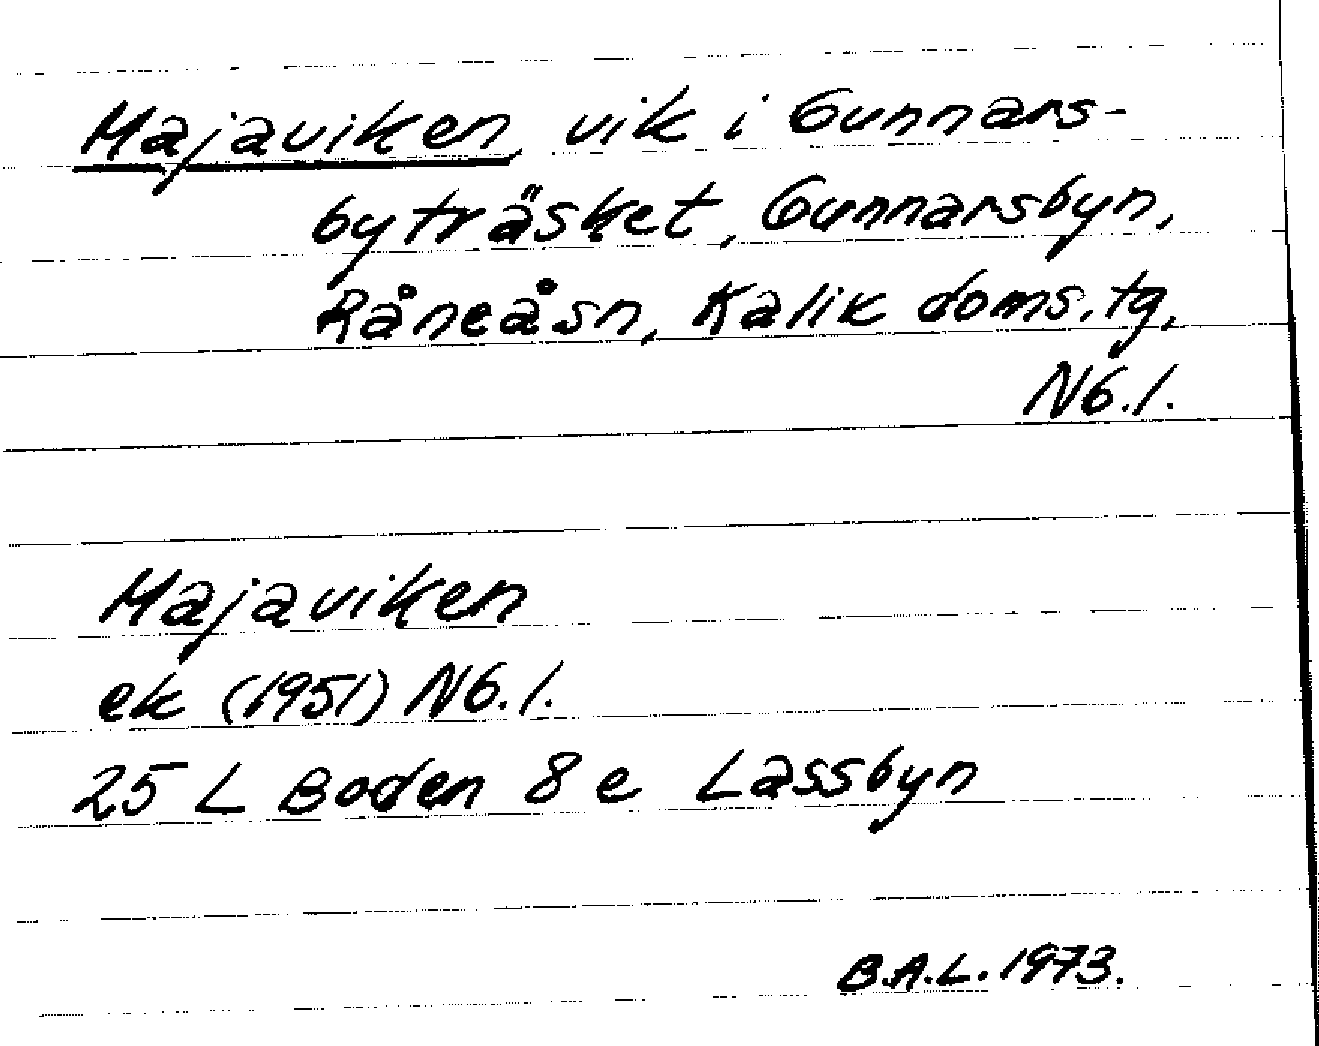 Majaviken, vik i Gunnars-
byträsket, Gunnarsbyn,
Råneå sn, Kalix doms.tg,
Nb.l.
Majaviken
ek (1951) Nb.l.
25 L Boden 8 e Lassbyn
B.A.L. 1973.